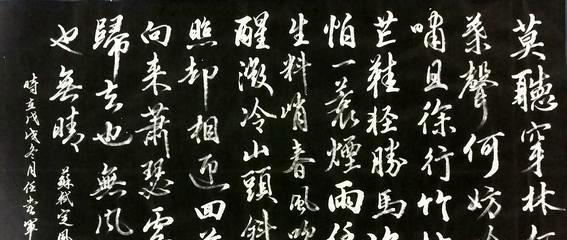 莫聽穿林
葉聲何妨
嘯且徐行竹
芒鞋輕勝馬
怕一蓑煙雨任
生料峭春風吹
醒微冷山頭斜
照却相迎回首
向来蕭瑟處
歸去也無風
也無晴
蘇軾定風
時在戊戌冬月